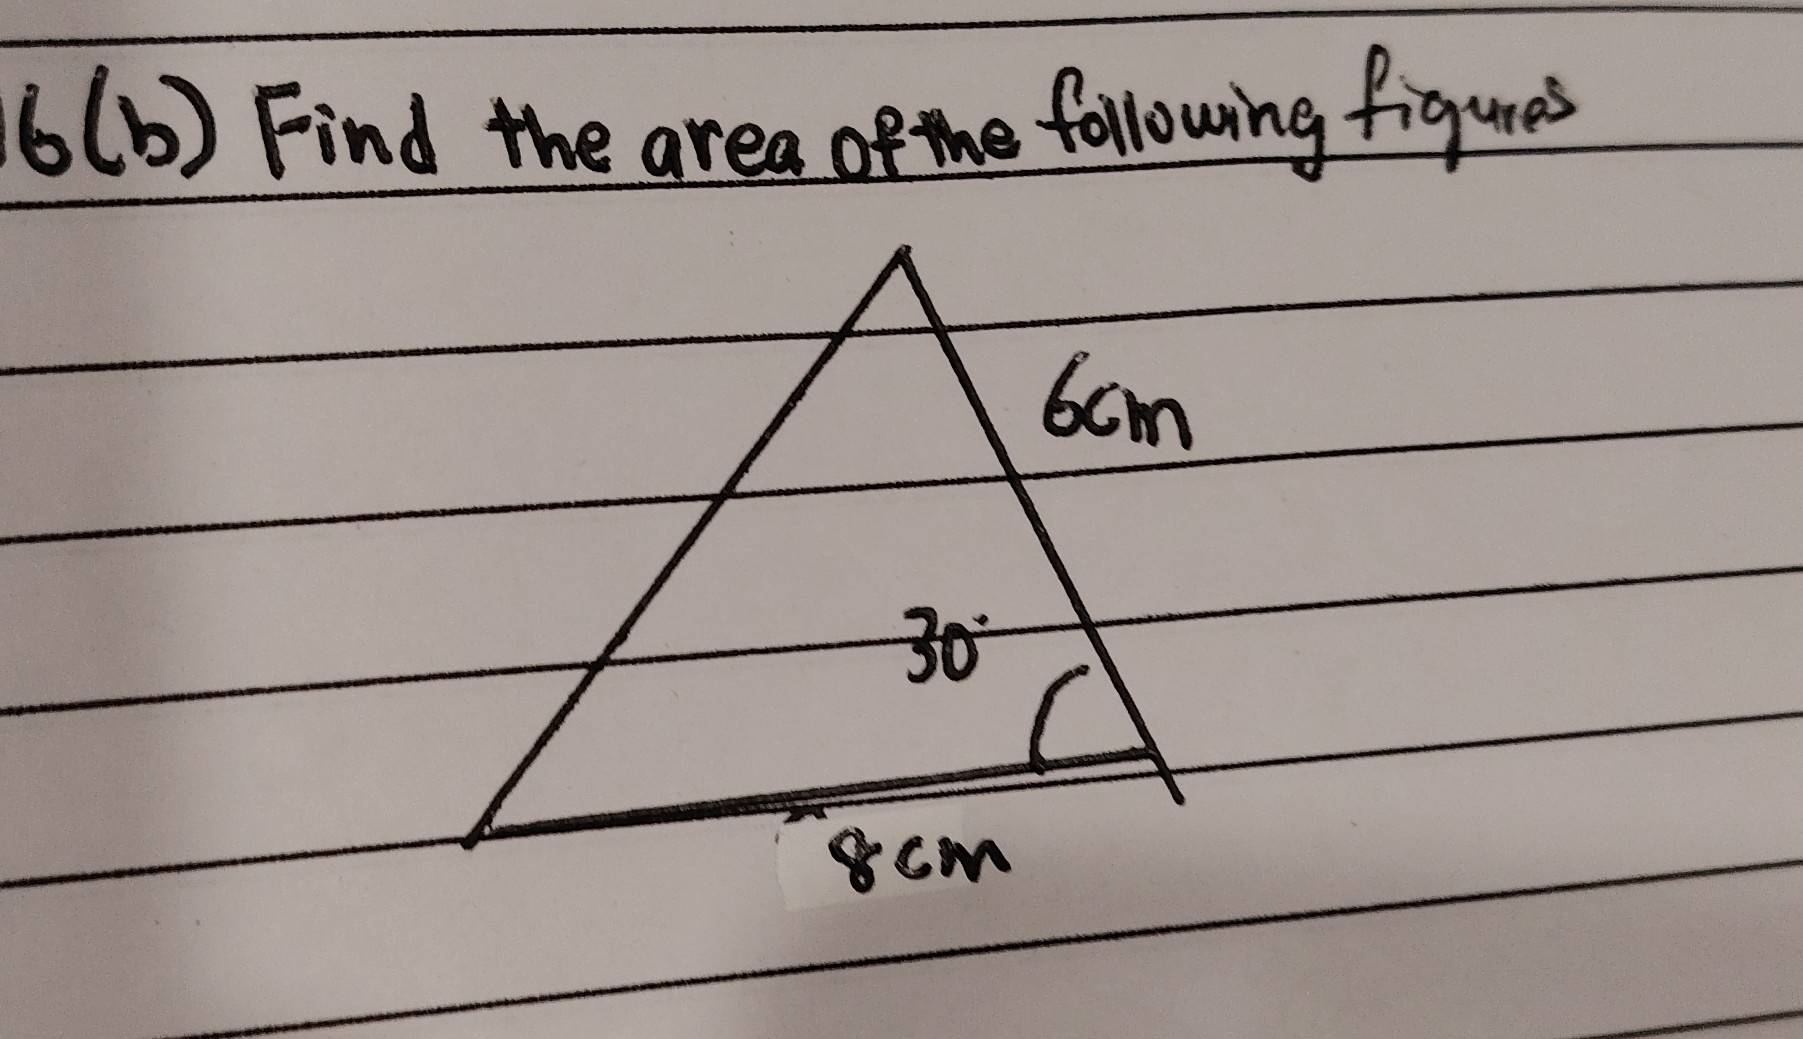 16(b) Find the area of the following figures
6cm
30°
8cm